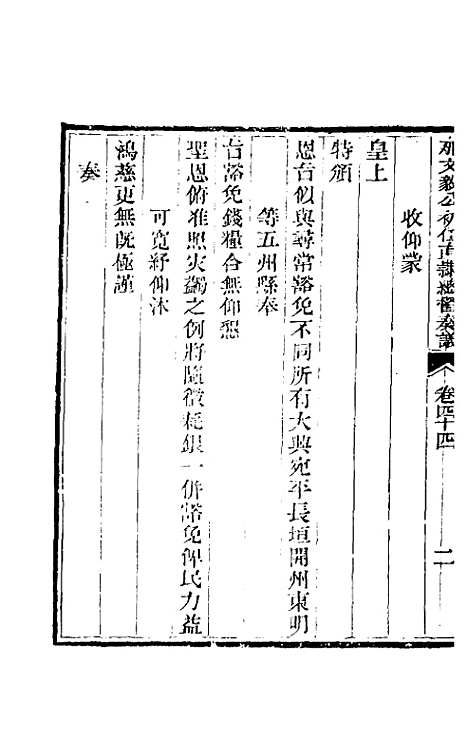 那文毅公初任直隸總督奏議 卷四十四 二
收仰蒙
皇上
特頒
恩旨似與尋常豁免不同所有大興宛平長垣開州東明
等五州縣奉
旨豁免錢糧合無仰懇
聖恩俯准照災蠲之例將隨徵耗銀一併豁免俾民力益
可寬紓仰沐
鴻慈更無旣極謹
奏